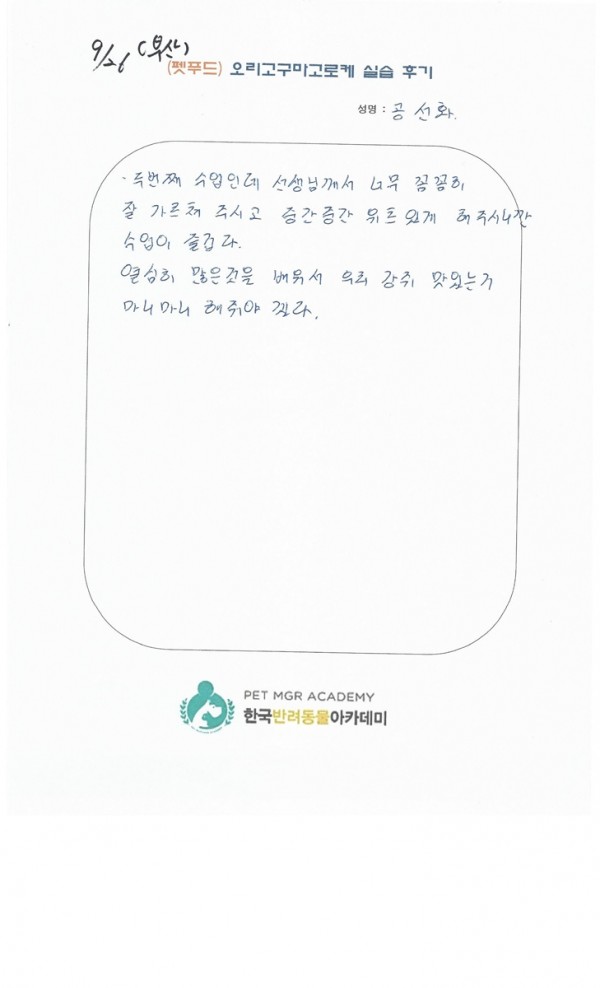 9/26 (부산)
(펫푸드) 오리고구마고로케 실습 후기
성명 : 공 선화.
· 두번째 수업인데 선생님께서 너무 꼼꼼히
잘 가르쳐 주시고 중간중간 위트있게 해주시니깐
수업이 즐겁다.
열심히 많은것을 배워서 우리 강쥐 맛있는거
마니마니 해줘야 겠다.
PET MGR ACADEMY
한국반려동물아카데미